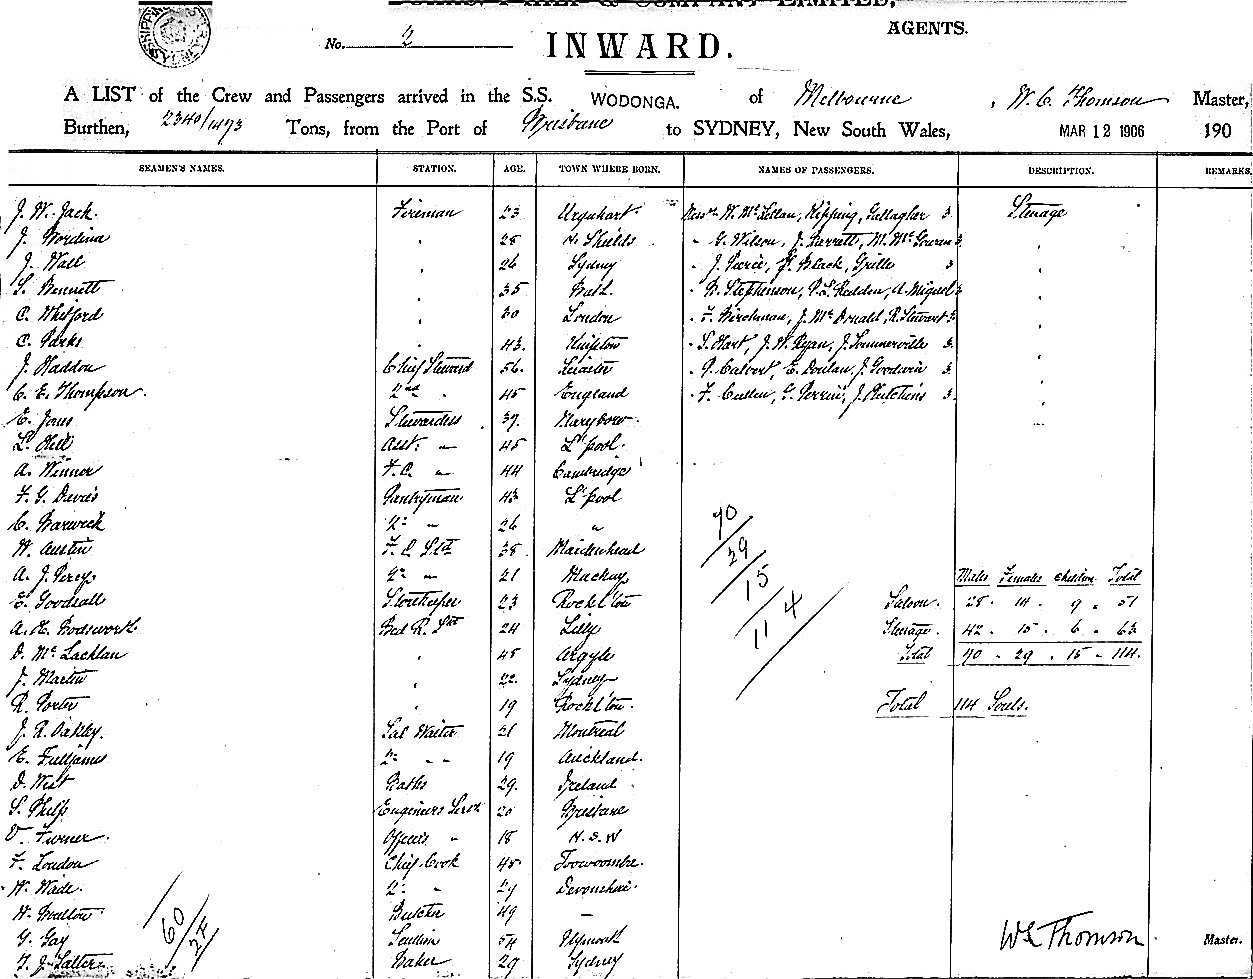 COMPANY LIMITED,
AGENTS.
No. 2
INWARD.
A LIST of the Crew and Passengers arrived in the S.S. WODONGA. of Melbourne, W. C. Thomson Master,
Burthen, 2340/1473 Tons, from the Port of Brisbane to SYDNEY, New South Wales, MAR 12 1906 190
SEAMEN'S NAMES. STATION. AGE. TOWN WHERE BORN. NAMES OF PASSENGERS. DESCRIPTION. REMARKS.
J. W. Jack Fireman 23 Urquhart Messrs W. McLellan, Kipping, Gallagher 3 Steerage
J. 28 N. Shields " G. Wilson, J. Garratt, M. McGowan 3
J. Wall 26 Sydney " J. Pierce, Black, Grille 3
S. Bennett 35 " Stephenson, Hadden, A. Miguel 3
C. Whitford 30 London " F. Birchman, J. McDonald, R. Stewart 3
C. Parks 43 " S. Hart, J. W. Ryan, J. Sommerville 3
J. Haddon Chief Steward 56 Leicester " Calvert, E. Doulan, J. Goodwin 3
C. E. Thompson 2nd " 45 England " F. Cullen, G. Perrin, J. Hutchins 3
E. Jones Stewardess 37 Maryboro
L. Hill Asst. " 45 L'pool
A. Winner F.C. " 44 Cambridge
F. G. Davies Pantryman 43 L'pool
C. Warwick 2: " 26 "
W. Austin F.C. Std 38 Maidenhead
A. J. Percy 2: " 21 Mackay
E. Goodsall Storekeeper 23 Rockh'ton
A. H. Bodsworth Bed R. Std 24 Lilly
D. McLachlan 45 Argyle
J. Martin 22 Sydney
R. Porter 19 Rockh'ton
J. R. Oakley Sal Waiter 21 Montreal
E. Fulljames 2: " " 19 Auckland
D. West Baths 29 Ireland
S. Philp Engineers Servt 20 Brisbane
V. Turner Officers " 18 N.S.W
F. London Chief Cook 45 Toowoomba
W. Wade 2: " 29 Devonshire
W. Butcher 49 —
G. Gay Scullion 54 Plymouth
J. Salter Baker 29 Sydney
70/29/15/114
Males Females Children Total
Saloon. 28 . 14 . 9 . 51
Steerage . 42 . 15 . 6 . 63
Total 70 . 29 . 15 . 114.
Total 114 Souls.
60/24
W C Thomson Master.